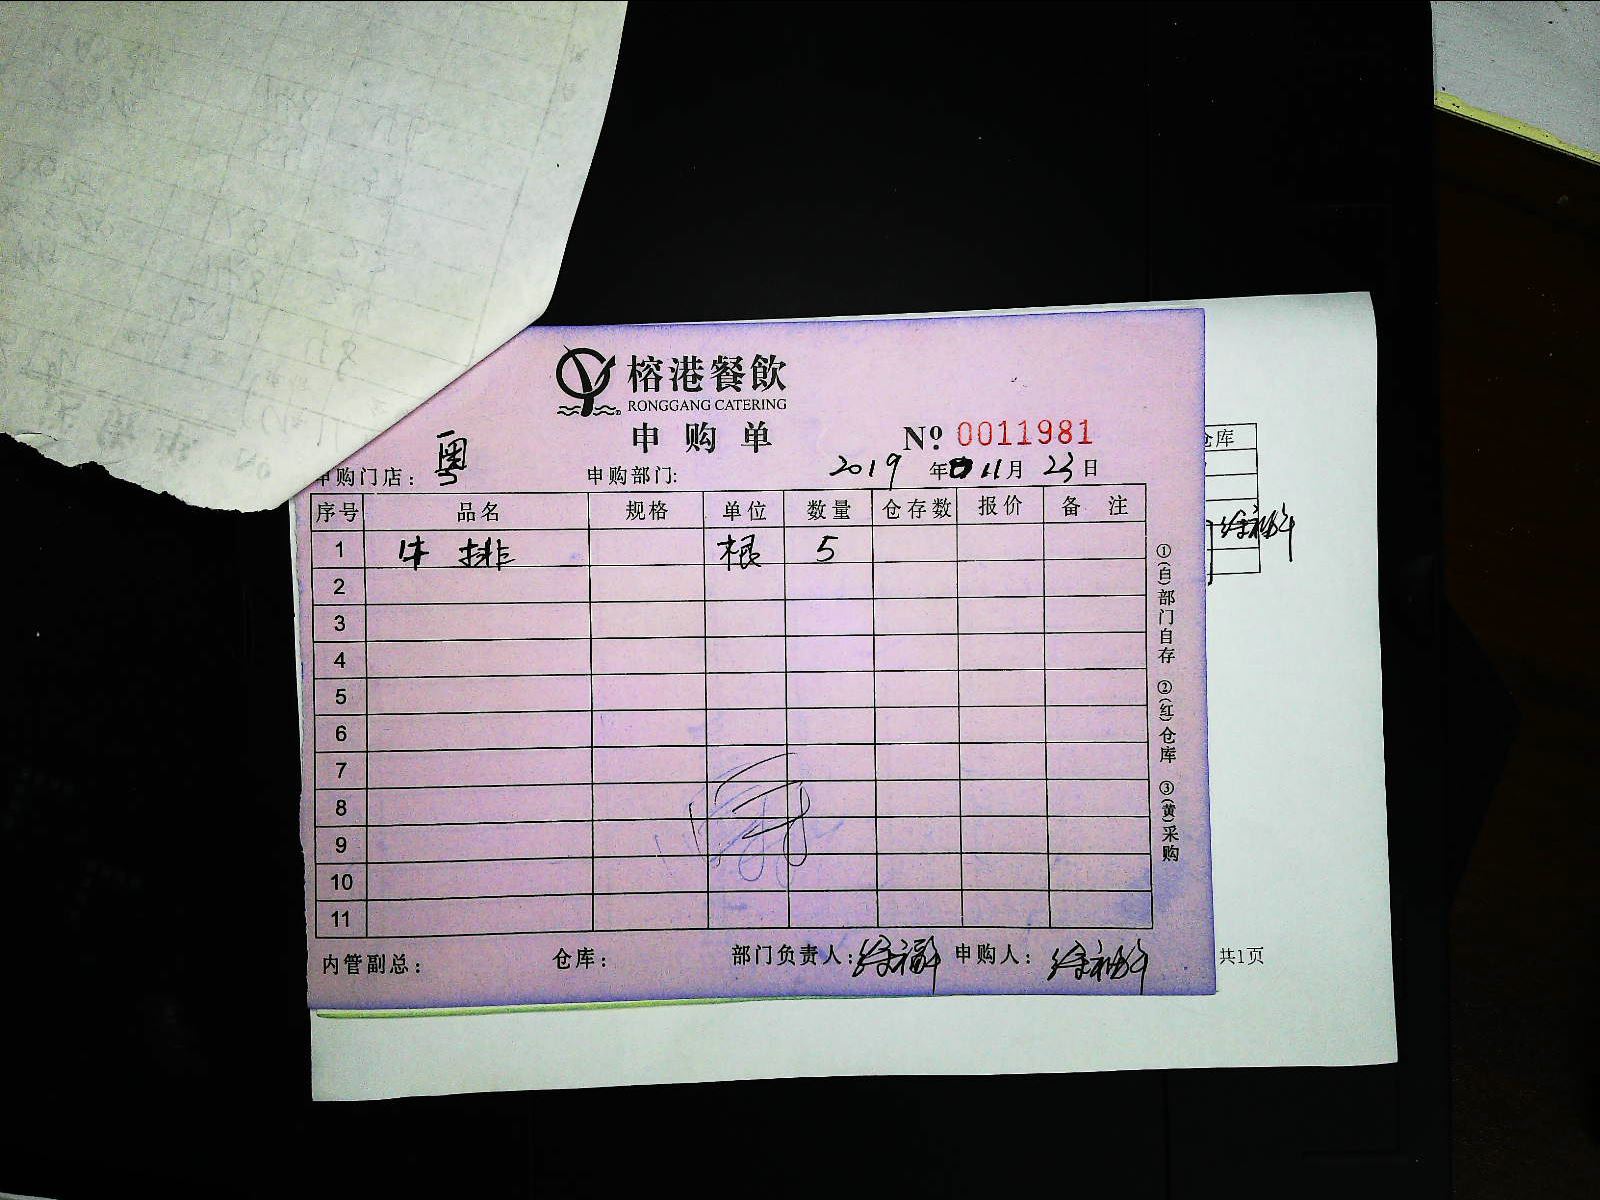 榕港餐飲
RONGGANG CATERING
申购单 Nº 0011981
申购门店：粤 申购部门: 2019年11月23日
序号 品名 规格 单位 数量 仓存数 报价 备注
1 牛排 根 5
2
3
4
5
6
7
8
9
10
11
①(白)部门自存 ②(红)仓库 ③(黄)采购
内管副总： 仓库： 部门负责人： 申购人：
仓库
共1页